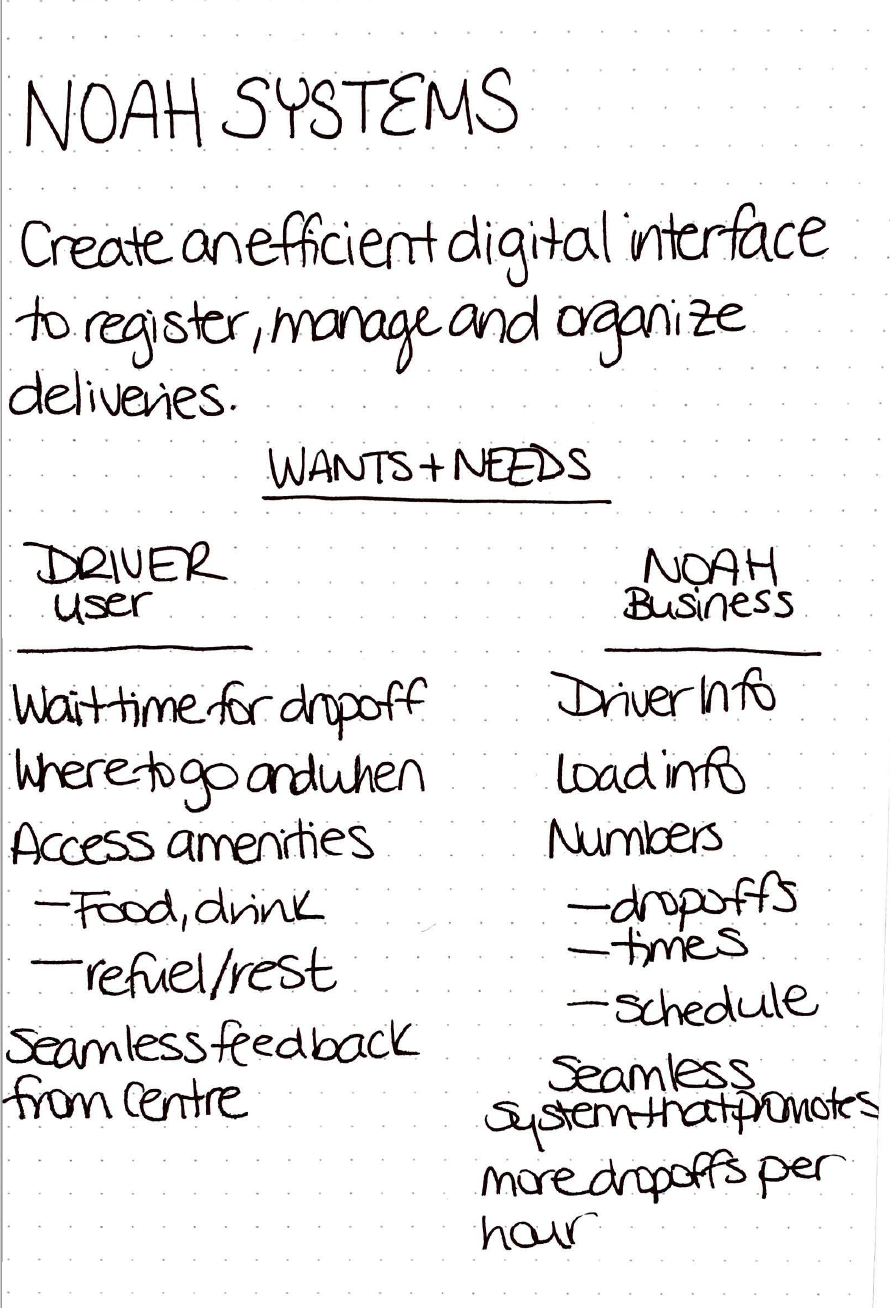 NOAH SYSTEMS
Create an efficient digital interface
to register, manage and organize
deliveries.
WANTS + NEEDS
DRIVER
user
Wait time for dropoff
Where to go and when
Access amenities
- Food, drink
- refuel/rest
Seamless feedback
from Centre
NOAH
Business
Driver Info
Load info
Numbers
- dropoffs
- times
- schedule
Seamless
system that promotes
more dropoffs per
hour